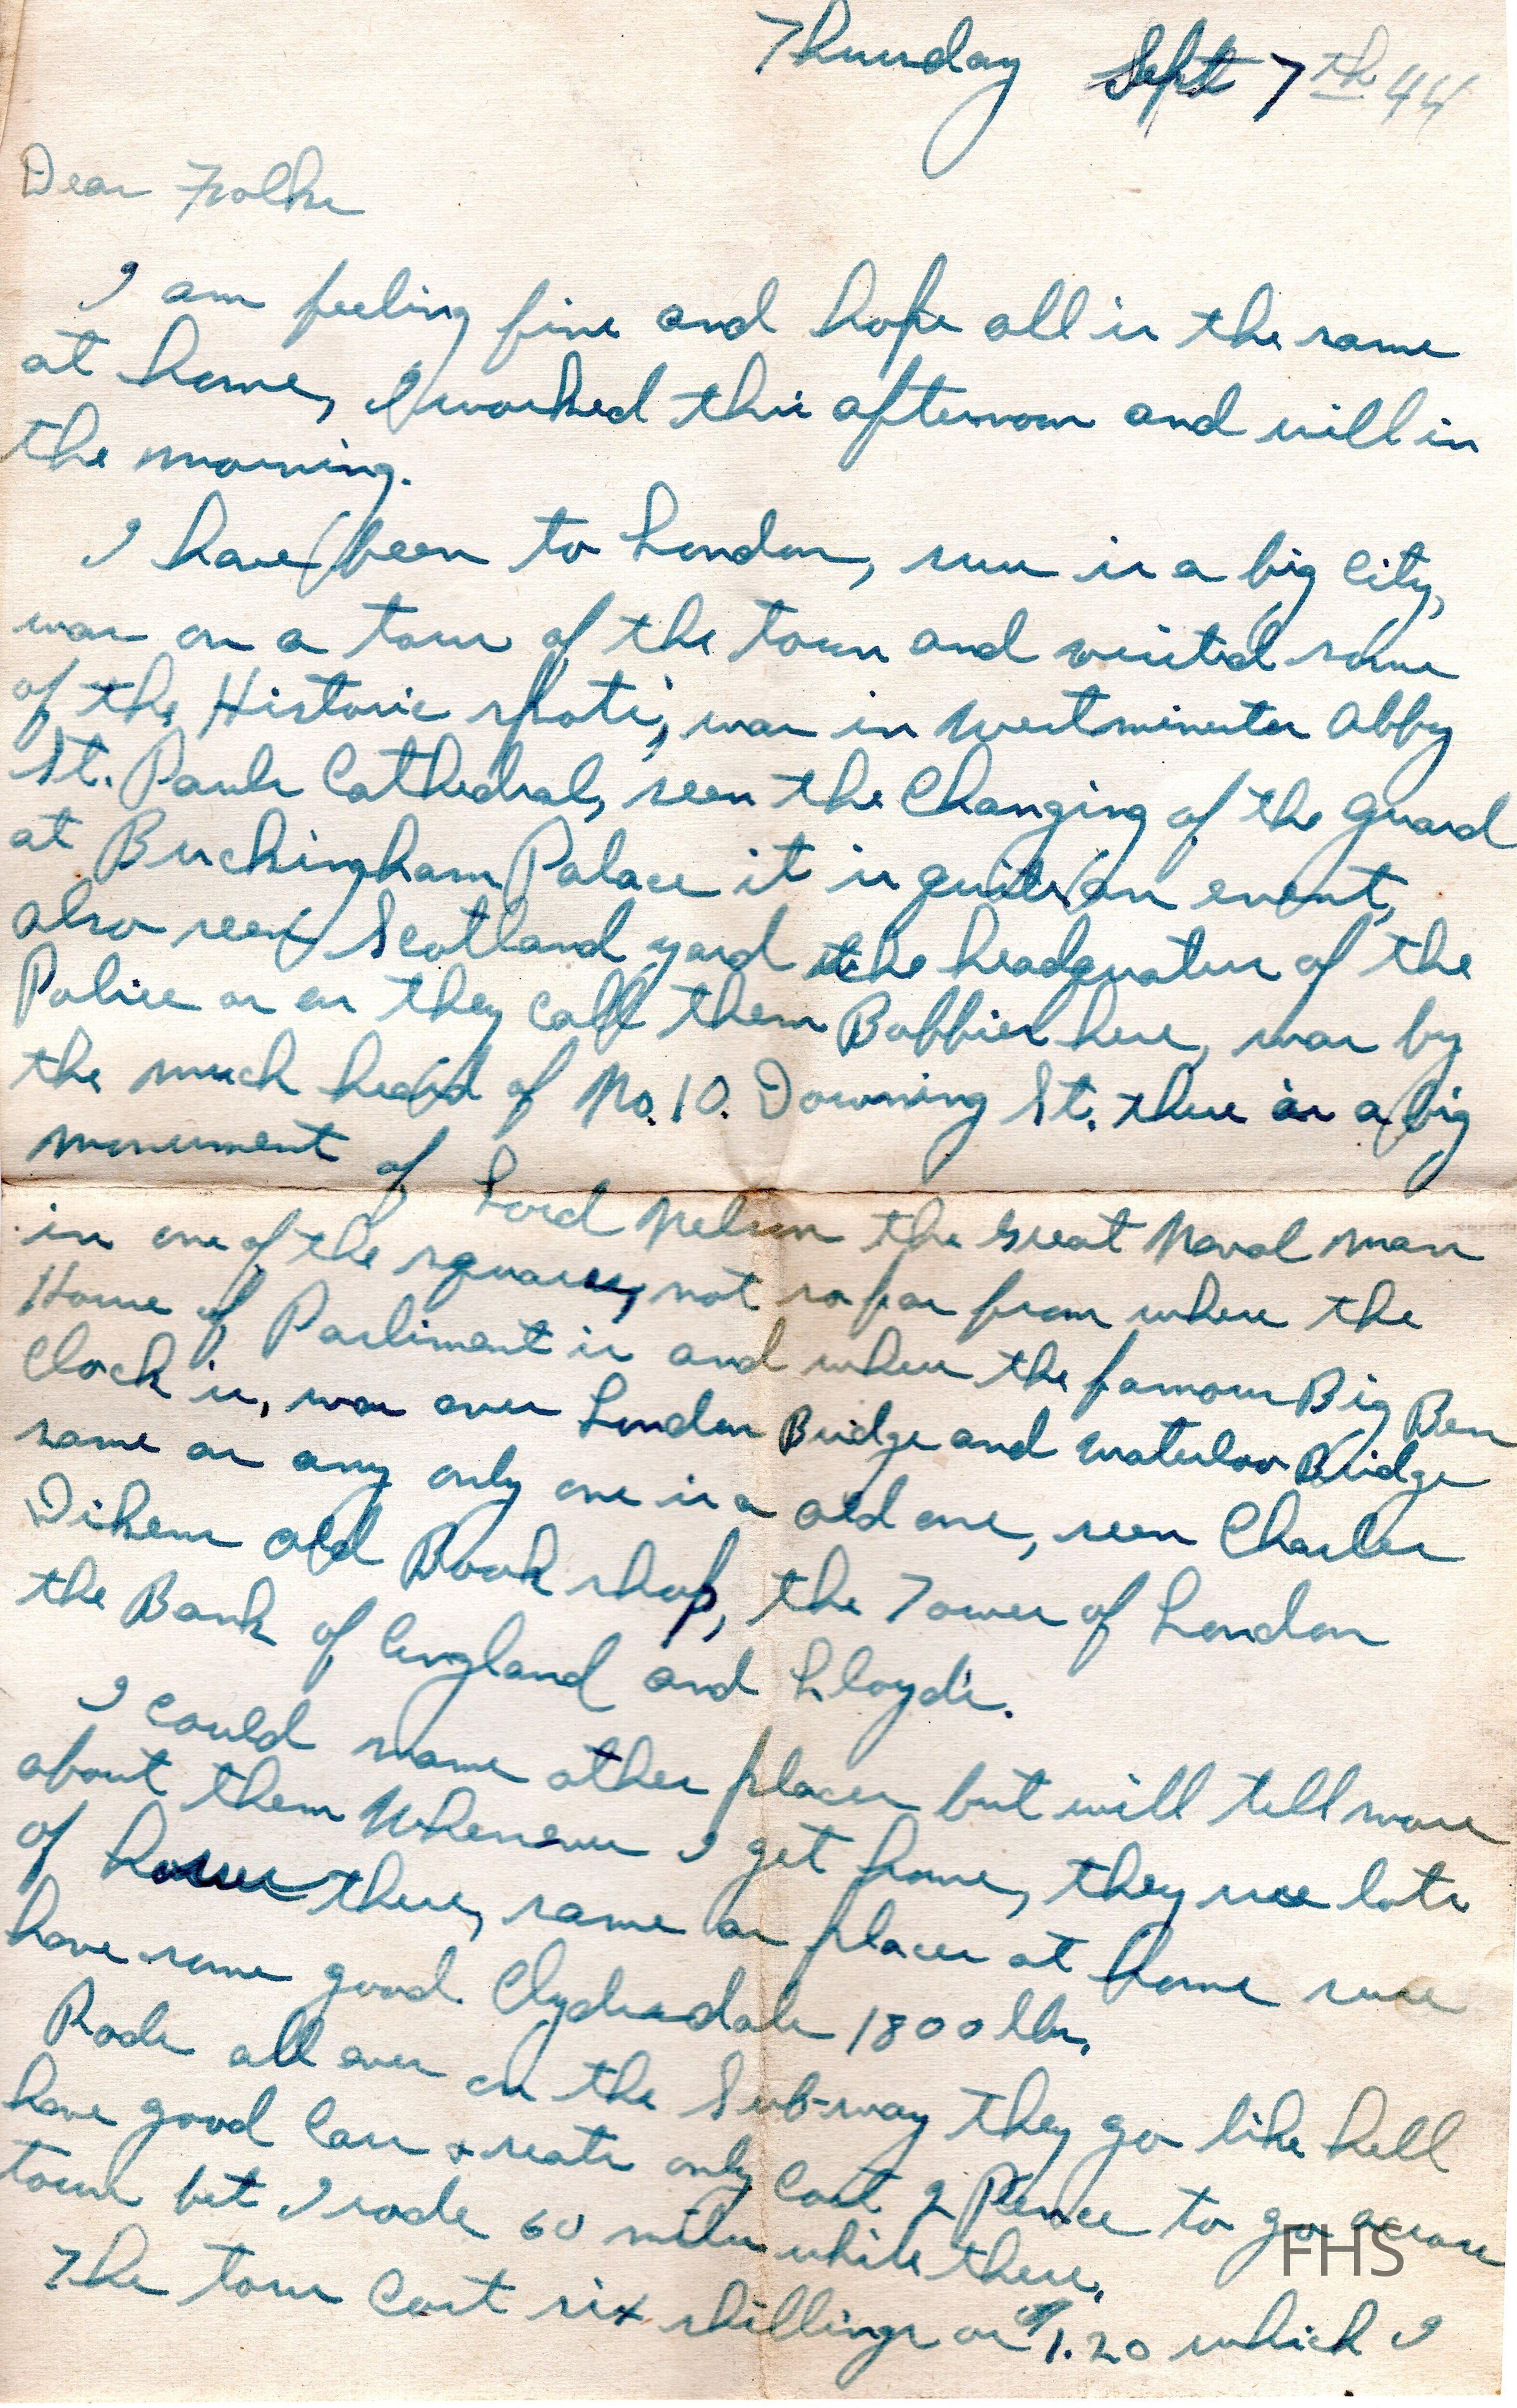 Thursday Sept 7th 44
Dear Folks
I am feeling fine and hope all is the same
at home, I worked this afternoon and will in
the morning.
I have been to London, sure is a big City,
was on a tour of the town and visited some
of the Historic spots, was in Westminester Abby
St. Pauls Cathedral, seen the Changing of the Guard
at Buckingham Palace it is quite an event,
also seen Scotland yard the headquaters of the
Police or as they call them Bobbies here, was by
the much heard of No. 10. Downing St. there is a big
monument of Lord Nelson the great Naval man
in one of the squares, not so far from where the
House of Parliment is and where the famous Big Ben
Clock is, was over London Bridge and Waterloo Bridge
same as any only one is a old one, seen Charles
Dikens old Book shop, the Tower of London
the Bank of England and Lloyd's.
I could name other places but will tell more
about them Whenever I get home, they use lots
of horses there, same as places at home sure
have some good Clydesdales 1800 lbs,
Rode all over on the Sub-way they go like hell
have good Cars & seats only Cost 2 Pence to go across
town bet I rode 60 miles while there,
The tour Cost six shillings or $1.20 which I
FHS